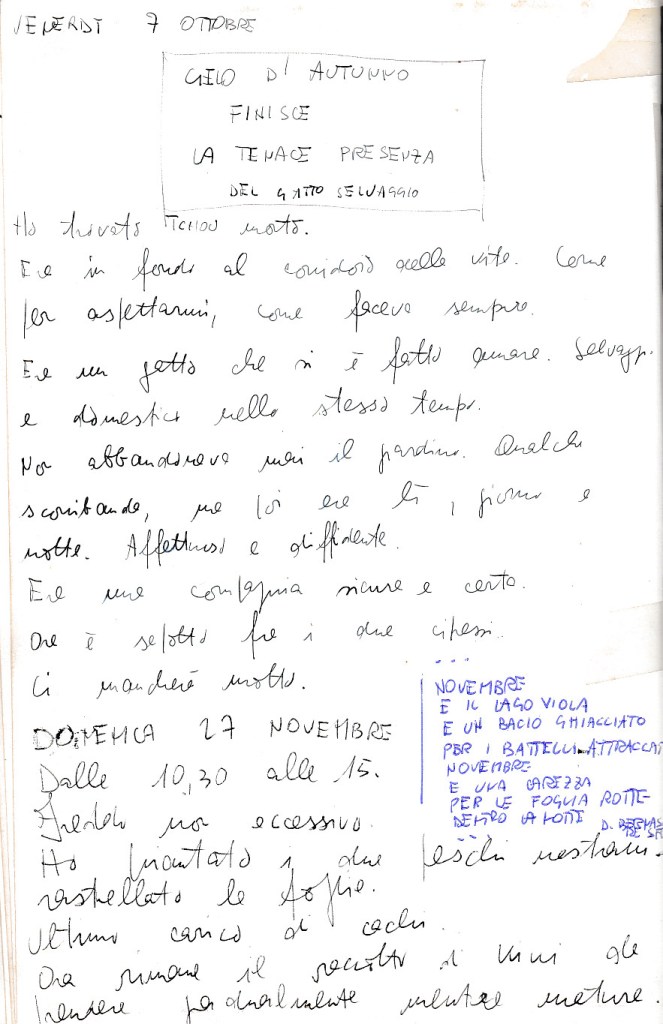 VENERDI 7 OTTOBRE
GELO D'AUTUNNO
FINISCE
LA TENACE PRESENZA
DEL GATTO SELVAGGIO
Ho trovato TCHOU morto.
Era in fondo al corridoio della vite. Come
per aspettarmi, come faceva sempre.
Era un gatto che si è fatto amare. Selvagg.
e domestico nello stesso tempo.
Non abbandonava mai il giardino. Qualche
scoribanda, ma poi era lì, giorno e
notte. Affettuoso e diffidente.
Era una compagnia sicura e certa.
Ora è sepolto fra i due cipressi.
Ci mancherà molto.
...
NOVEMBRE
E IL LAGO VIOLA
E UN BACIO GHIACCIATO
PER I BATTELLI ATTRACCAT
NOVEMBRE
E UNA CAREZZA
PER LE FOGLIA ROTTE
DENTRO LA NOTTE
...
DOMENICA 27 NOVEMBRE
Dalle 10,30 alle 15.
Freddo non eccessivo.
Ho piantato i due peschi nostrani.
rastrellato le foglie.
Ultimo carico di cachi.
Ora rimane il raccolto di kiwi da
prendere gradualmente mentre matura.